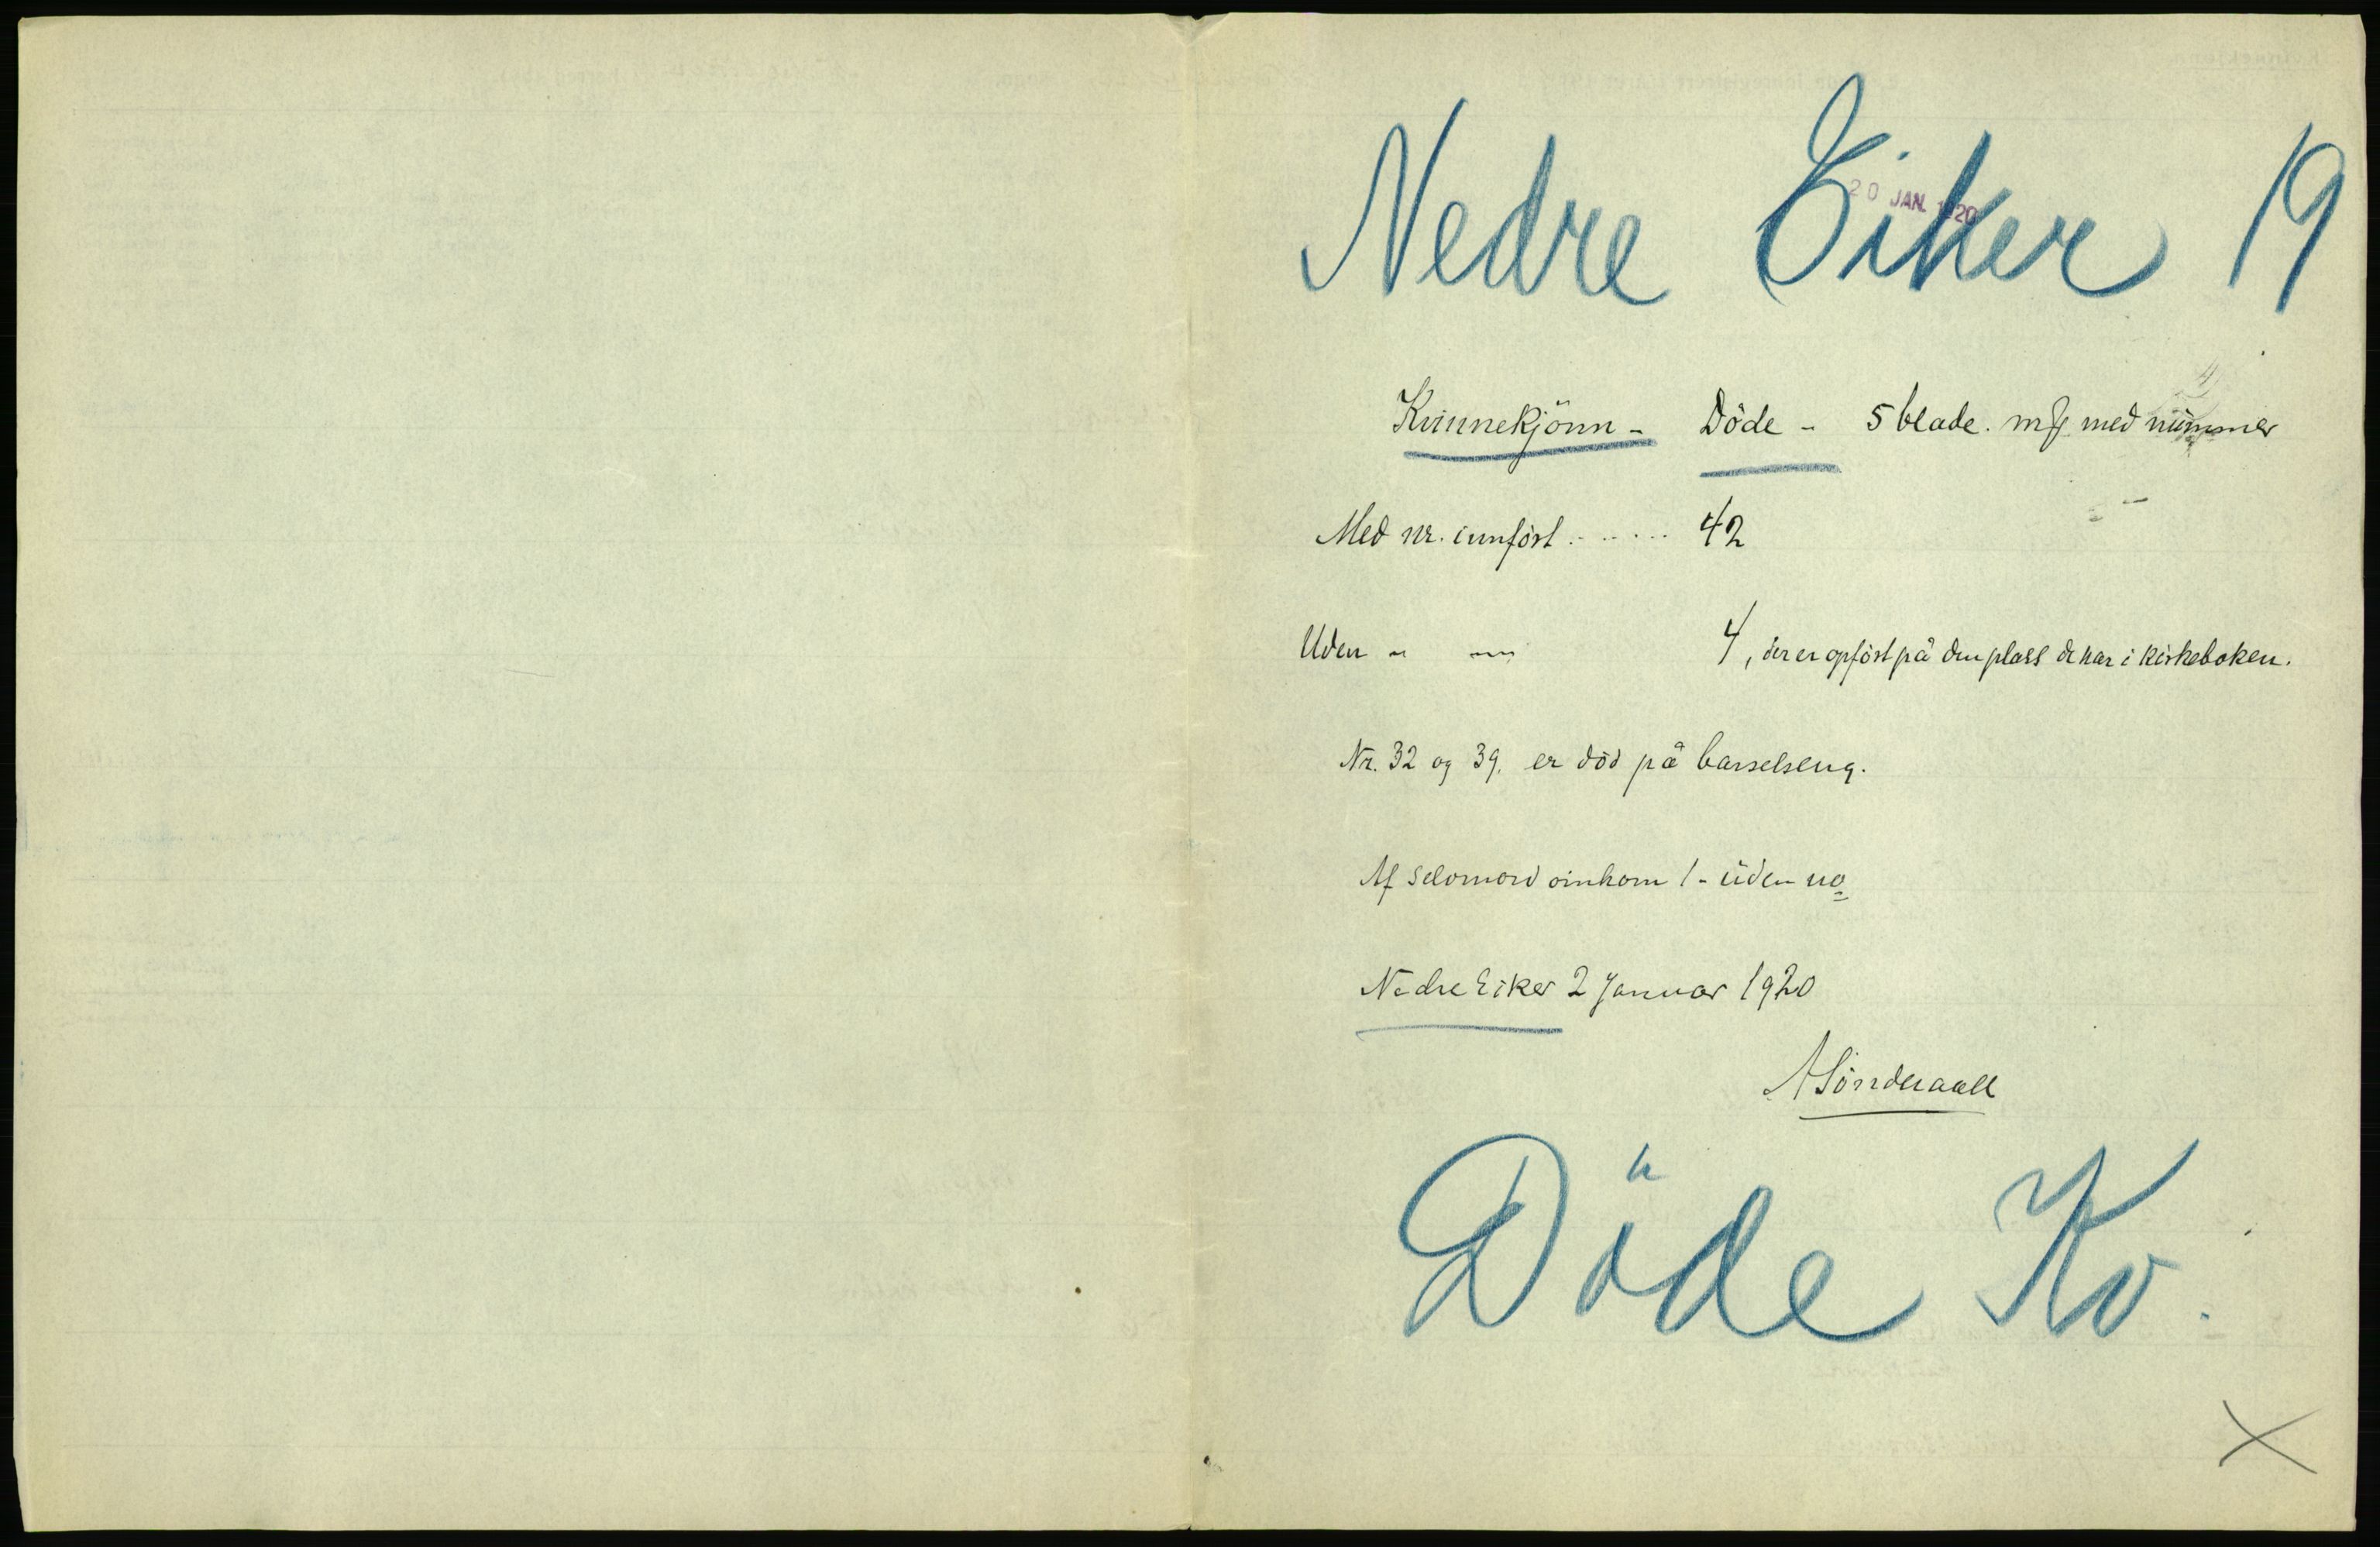 Nedre Eiker 19
20 JAN. 1920
Kvinnekjönn - Döde - 5 blade. med nummer
Med nr. innfört ....... 42
Uden " — 4, der er opfört på den plass de har i kirkeboken.
Nr. 32 og 39. er död på barselseng.
Af selvmord omkom 1 - uden no
Nedre Eiker 2 Januar 1920
Döde Kv.
X